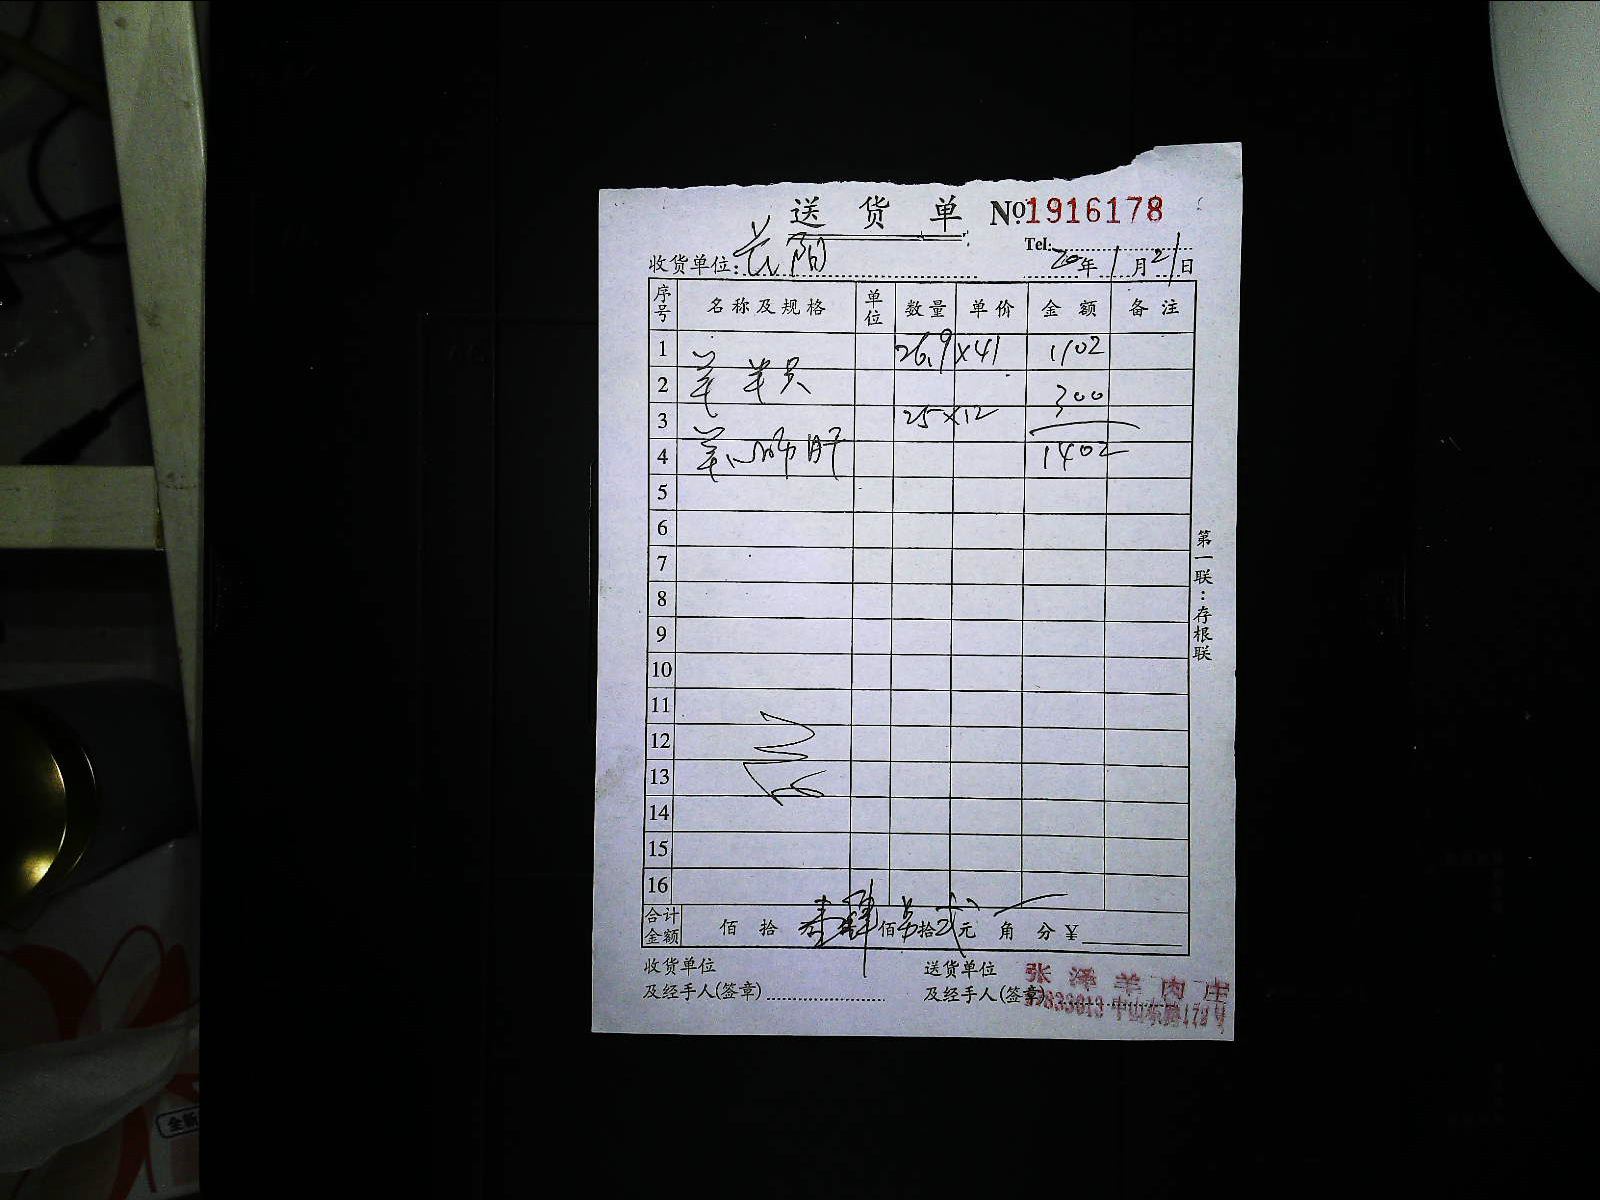 送 货 单 №1916178
Tel:
收货单位: 长阳 20年 1月21日
序号 名称及规格 单位 数量 单价 金额 备注
1 26.9×41 1102
2 羊 300
3 25×12
4 羊心肺肝 1402
5
6
7
8
9
10
11
12
13
14
15
16
合计金额 佰 拾 肆佰 拾贰元 角 分 ¥
收货单位 送货单位
及经手人(签章) 及经手人(签章)
张泽羊肉庄
中山东路178号
第一联:存根联
全新